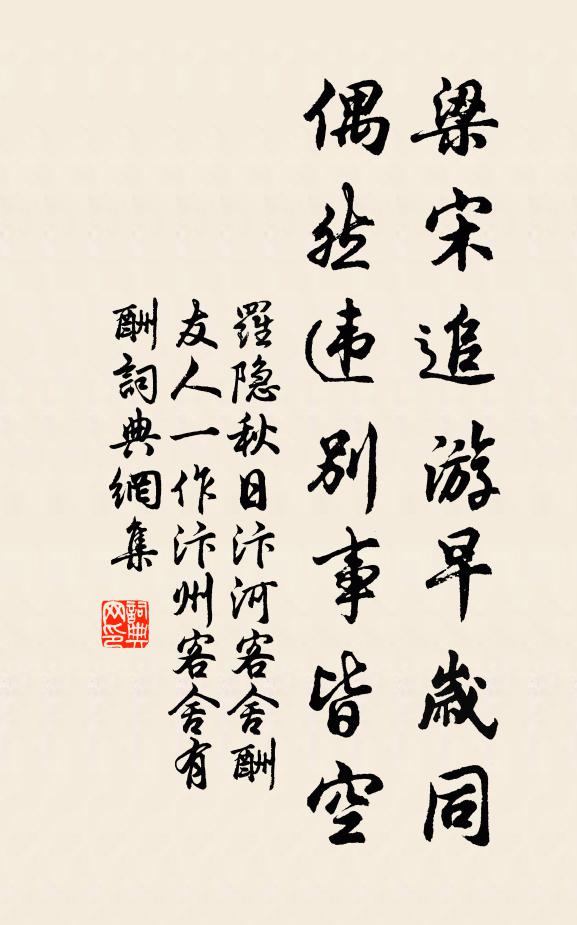 梁宋追游早岁同
偶然违别事皆空
羅隐秋日汴河客舍酬
友人一作汴州客舍有
酬詞典網集
詞典
网印